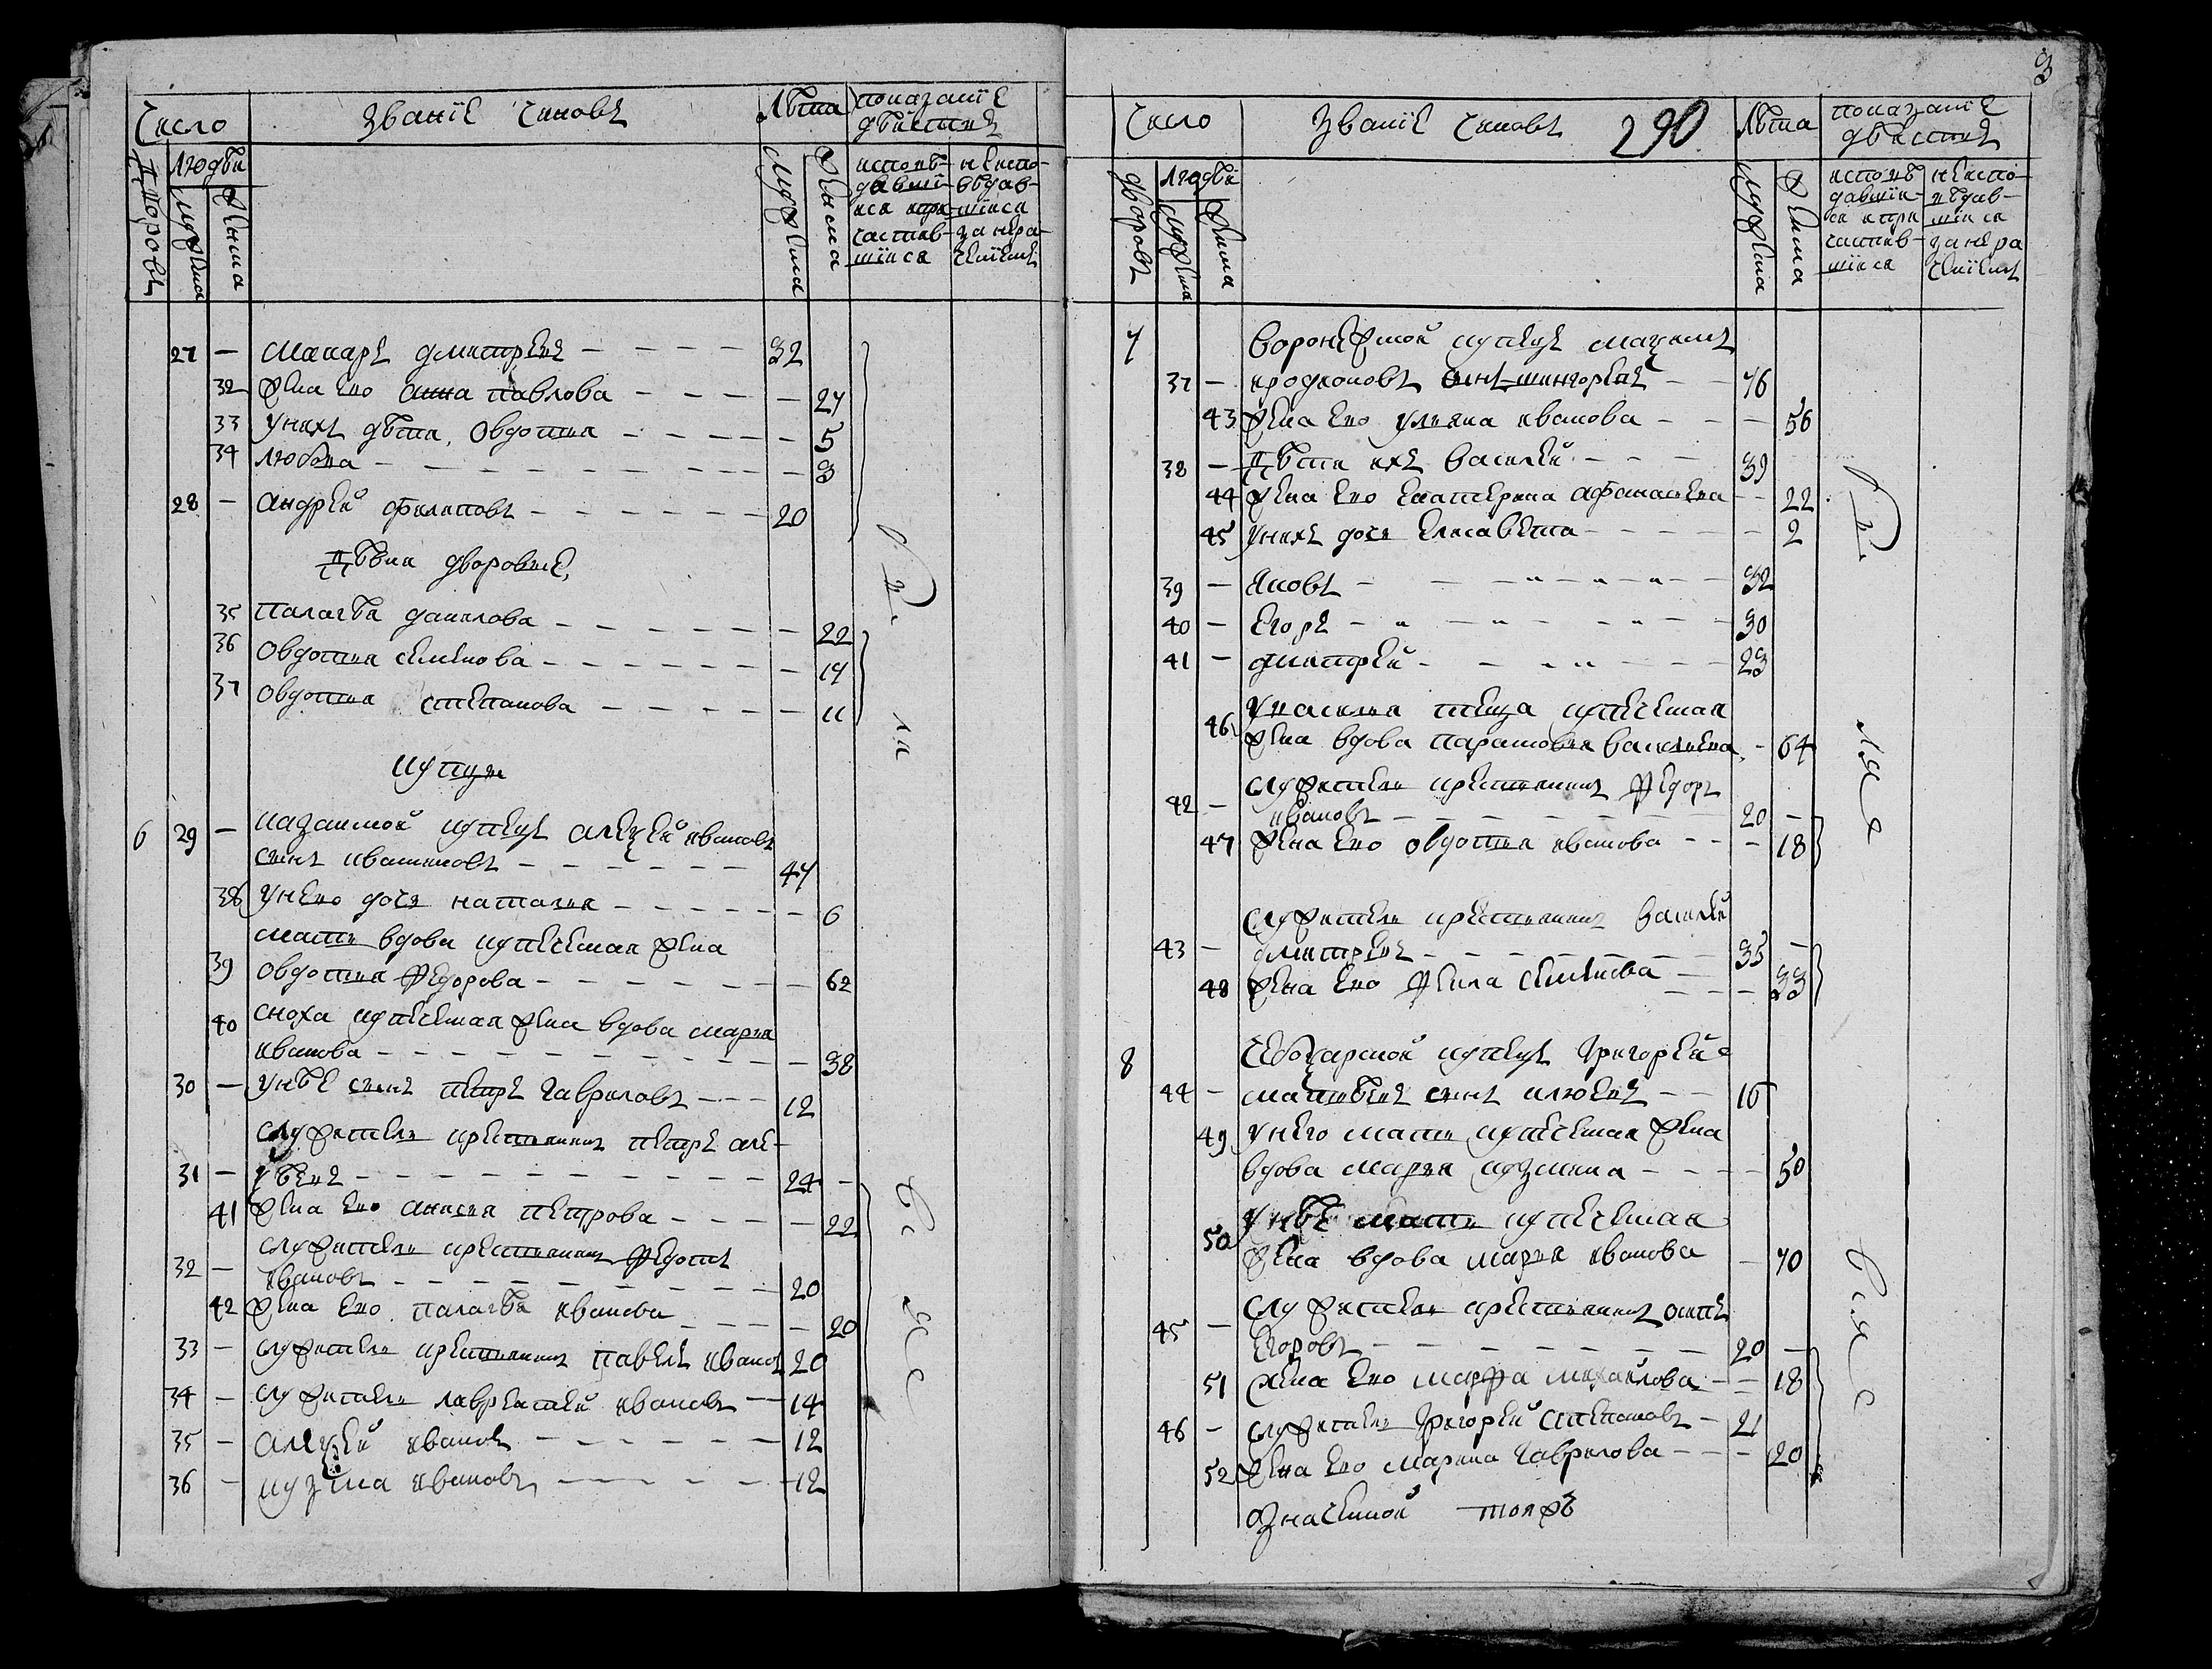 Число Званїе чиновъ Лѣта показанїе
дѣистия
Дворовъ людѣи мужска женска мужска женска исповѣ- неиспо-
давши- вѣдав-
еся ипри- шиися
частив- занера-
шїися ченїемъ
27 — макаръ дмитреевъ — 32
32 жена ево анна павлова — 27
33 унихъ дѣти, овдотия — 5
34 любовь — 3
28 — андрей филиповъ — 20
дѣвки дворовые
35 палагѣя данилова — 22
36 овдотия семенова — 17
37 овдотия степанова — 11
купцы
6 29 — казанской купецъ алеѯей ивановъ
сынъ — 47
38 унево дочь наталия — 6
мать вдова купеческая жена
39 овдотия ѳедорова — 62
40 сноха купеческая жена вдова мария
иванова — 38
30 — унѣе сынъ петръ гавриловъ — 12
служители крестьянинъ петръ але-
31 — ѯѣевъ — 24 —
41 жена ево анисия петрова — 22
служители крестьянинъ ѳедотъ
32 — ивановъ — 20
42 жена ево палагѣя иванова — 20
33 — служители крестьянинъ павелъ ивановъ 20
34 — служители лаврентей ивановъ — 14
35 — алеѯей ивановъ — 12
36 — кузма ивановъ — 12
3
Число Званїе чиновъ 290 Лѣта показанїе
дѣистия
дворовъ людѣй мужска женска мужска женска исповѣ неиспо-
давшїи- вѣдав-
ся ипри шїися
частив- занера
шїися ченїемъ
7 воронежской купецъ маѯимъ
37 — иродионовъ сынъ — 76
43 жена ево улияна иванова — 56
38 — дѣти ихъ василей — 39
44 жена ево екатерина афанасиева — 22
45 унихъ дочь елисавета — 2
39 — яковъ — 32
40 — егоръ — 30
41 — дмитрей — 23
увасилия теща купеческая
46 жена вдова парасковия василиева — 64
служители крестьянинъ ѳедоръ
42 — ивановъ — 20 —
47 жена ево овдотия иванова — 18
служители крестьянинъ василей
43 — дмитреевъ — 35 —
48 жена ево ѳекла семенова — 33
8 чебоѯарской купецъ григорей
44 — матвѣевъ сынъ клюевъ — 16
49 унего мать купеческая жена
вдова мария кузмина — 50
50 унѣе мать купеческая
жена вдова мария иванова — 70
служители крестьянинъ осипъ
45 — егоровъ — 20 —
51 жена ево марфа михайлова — 18
46 — служители григорей степановъ — 21
52 жена ево марина гаврилова — 20
означенной тояжъ